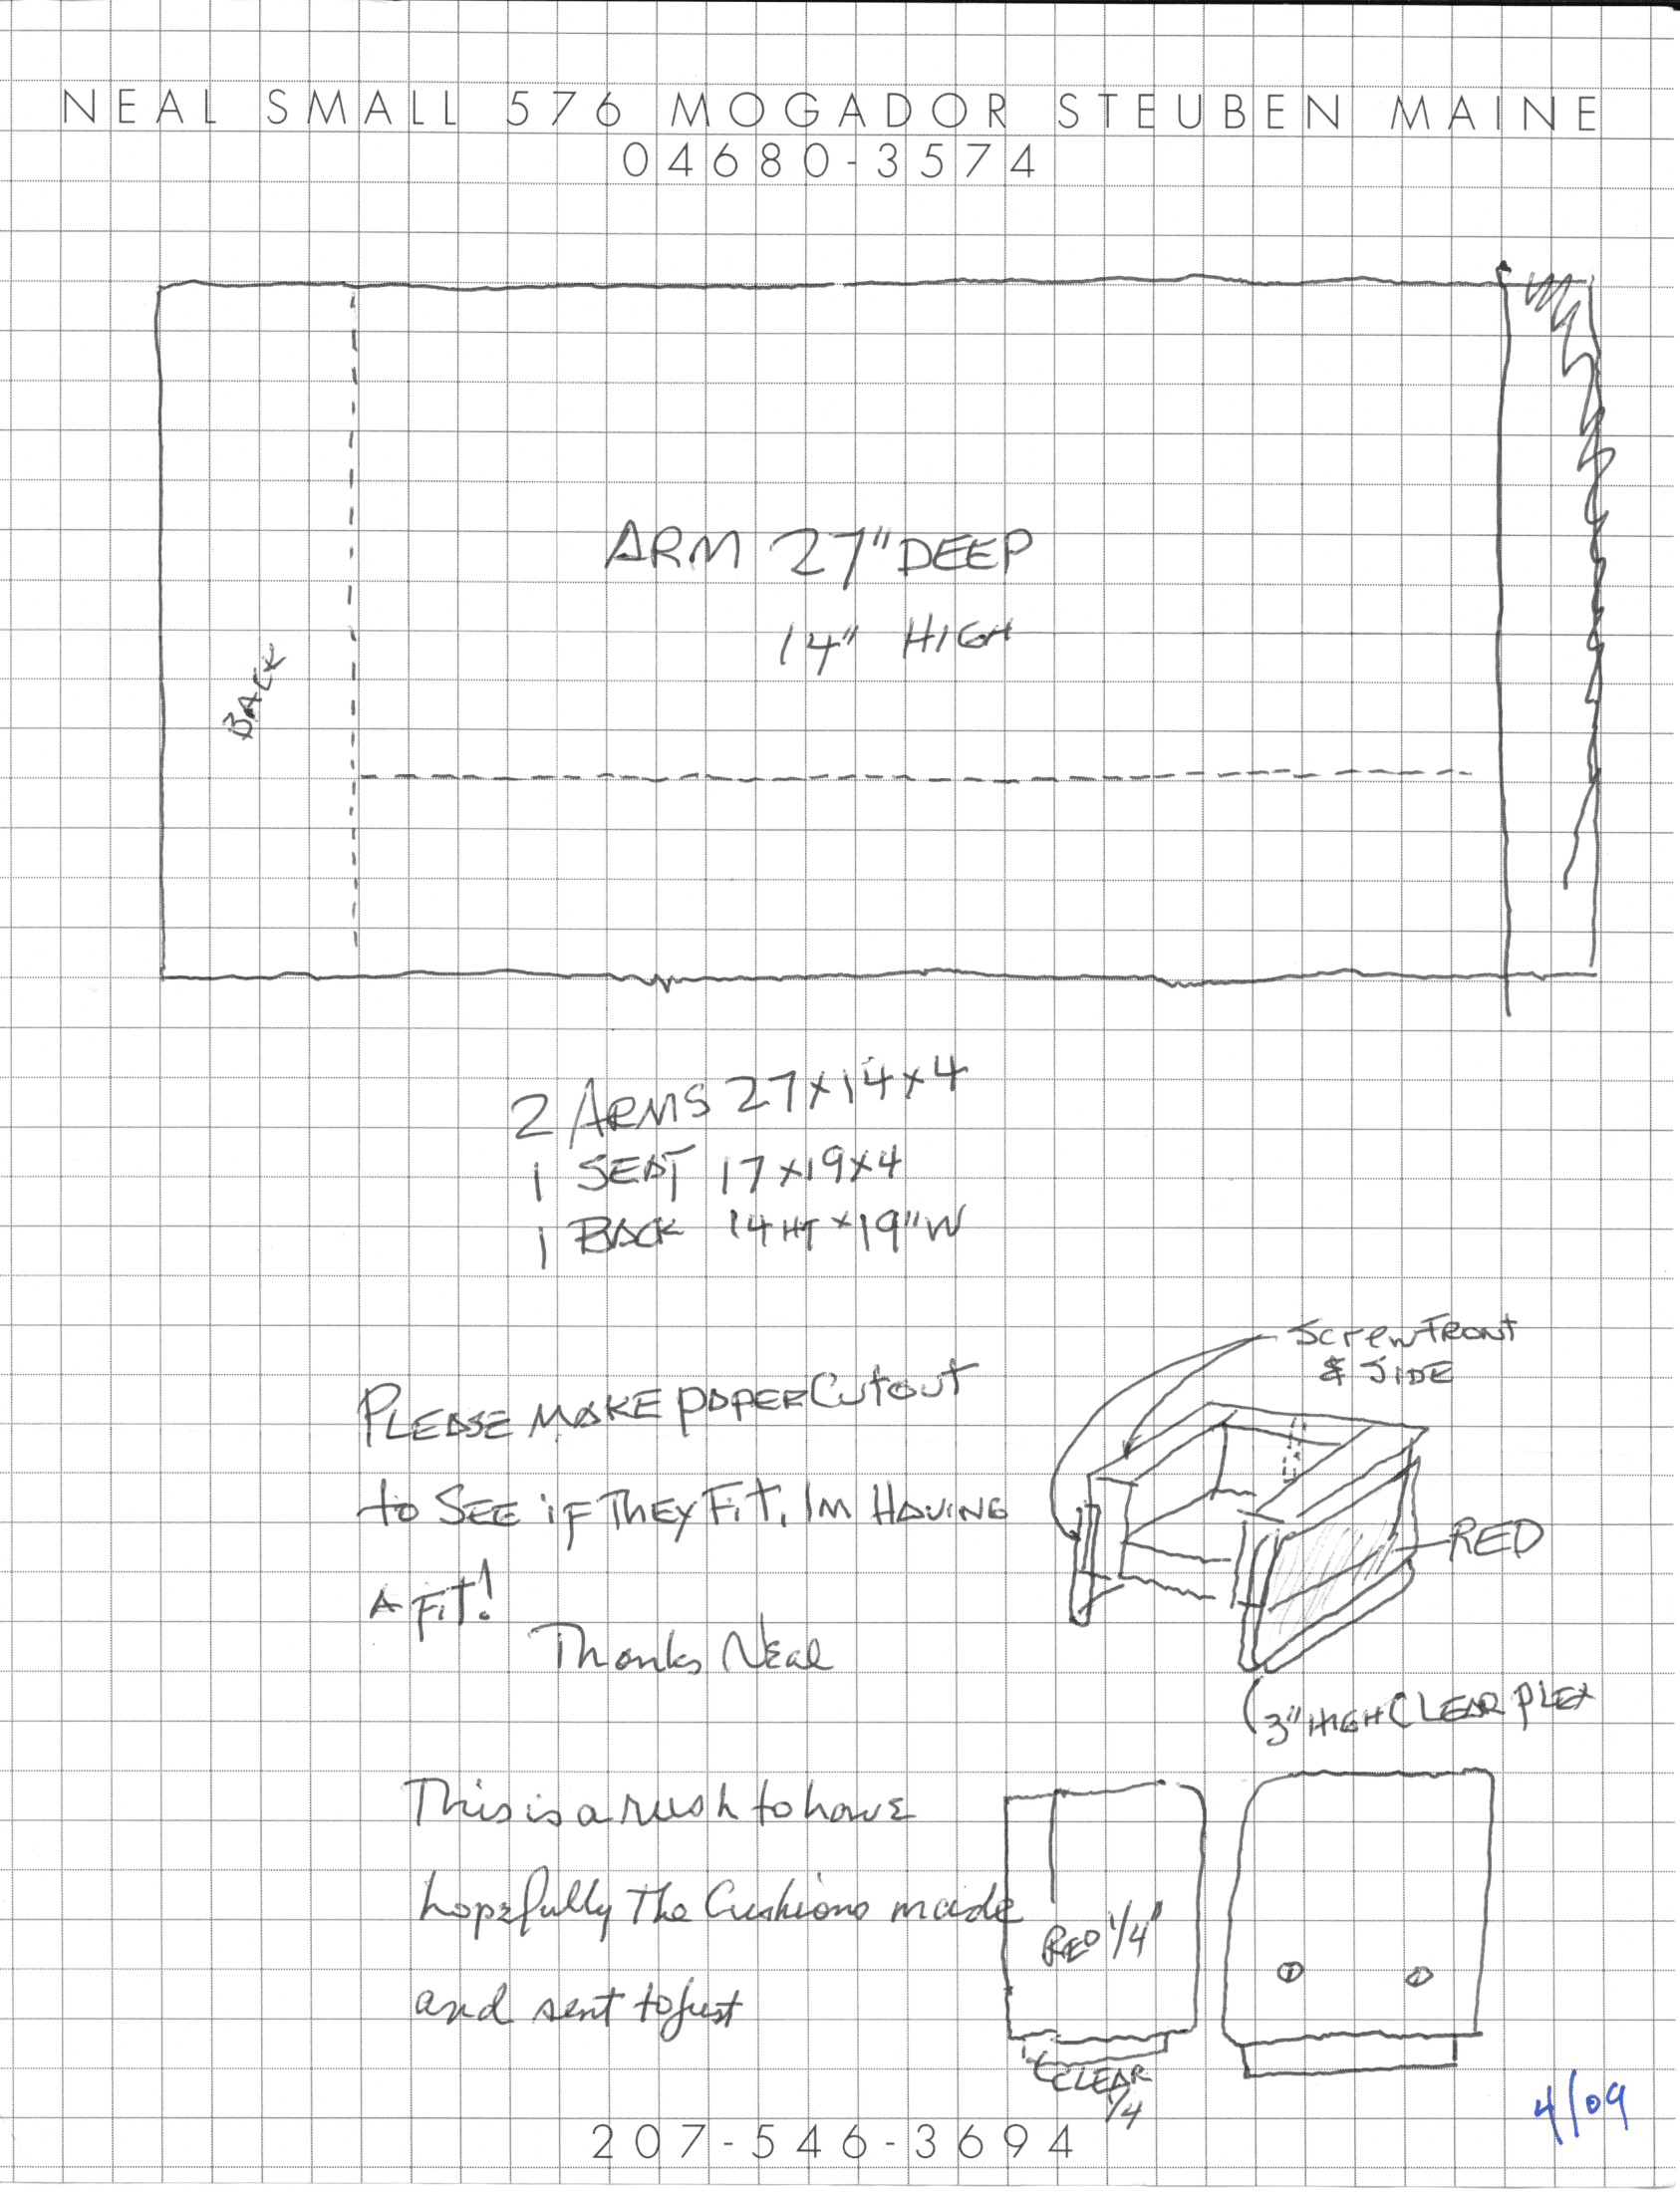 NEAL SMALL 576 MOGADOR STEUBEN MAINE
04680-3574
ARM 27" DEEP
14" HIGH
BACK
2 ARMS 27x14x4
1 SEAT 17x19x4
1 BACK 14 HT x 19" W
Screw FRONT
& SIDE
PLEASE MAKE PAPER Cutout
to SEE iF THEY FiT, IM HAVING
A FiT!
Thanks Neal
RED
3" HIGH CLEAR PLEX
This is a rush to have
hopefully The Cushions made
and sent to
RED 1/4"
CLEAR
1/4
4/09
207-546-3694